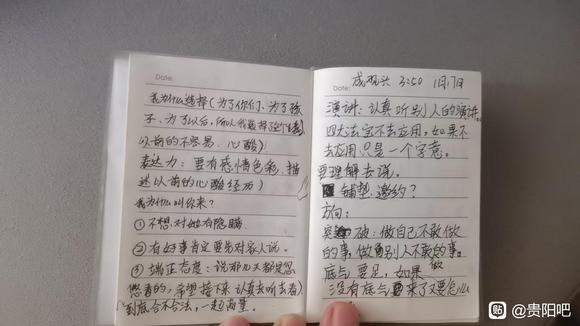 Date:
我为什么选择(为了你们、为了孩
子、为了以后,所以我选择了这个
以前的不容易、心酸)
表达力:要有感情色彩、描
述以前的心酸经历)
我为什么叫你来?
①不想对她有隐瞒
②有好事肯定要先对家人说。
③端正态度:说那几天都是忽
悠着的,希望接下来认真去听去看
到底合不合法,一起商量。
Date:
成观兴 3:50 11月17日
演讲:认真听别人的演讲。
四大法宝不去应用,如果不
去应用只是一个字意。
要理解去说。
铺垫邀约?
方向:
突破:做自己不敢做
的事,做别人不敢的事。
底气要足,如果做
没有底气来了又要怎么
贴 @贵阳吧